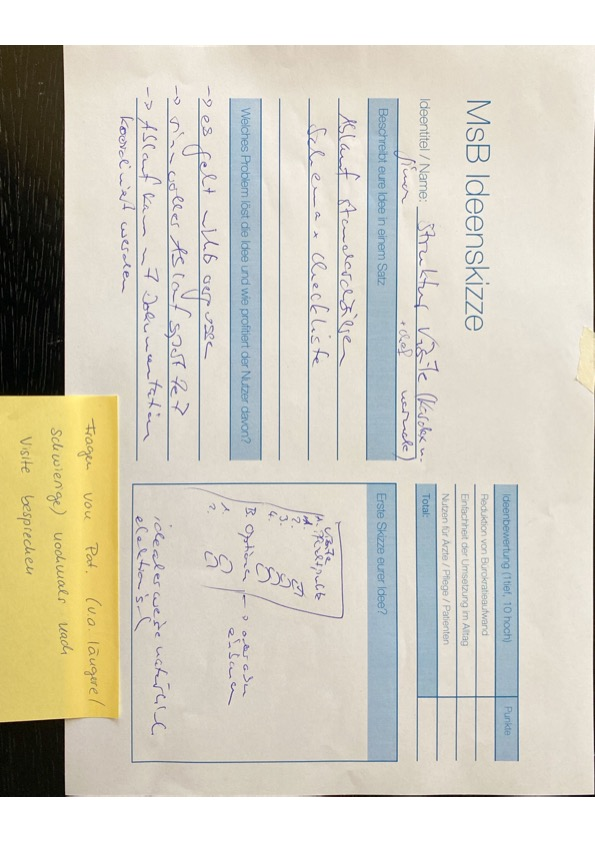 MsB Ideenskizze
Ideentitel / Name: Struktur Visite (Kader u.
Chef
Beschreibt eure Idee in einem Satz
Ablauf standardisieren
Schema + Checkliste
Welches Problem löst die Idee und wie profitiert der Nutzer davon?
-> es geht nichts vergessen
-> sinnvoller Ablauf spart Zeit
-> Ablauf kann mit Dokumentation
koordiniert werden
Ideenbewertung (1tief, 10 hoch)
Punkte
Reduktion von Bürokratieaufwand
Einfachheit der Umsetzung im Alltag
Nutzen für Ärzte / Pflege / Patienten
Total:
Erste Skizze eurer Idee?
Visite
A.
1.
2.
3.
4.
B. Optional
1.
2.
idealerweise natürlich
elektronisch
Fragen von Pat. (va längere/
schwierige) nochmals nach
Visite besprechen